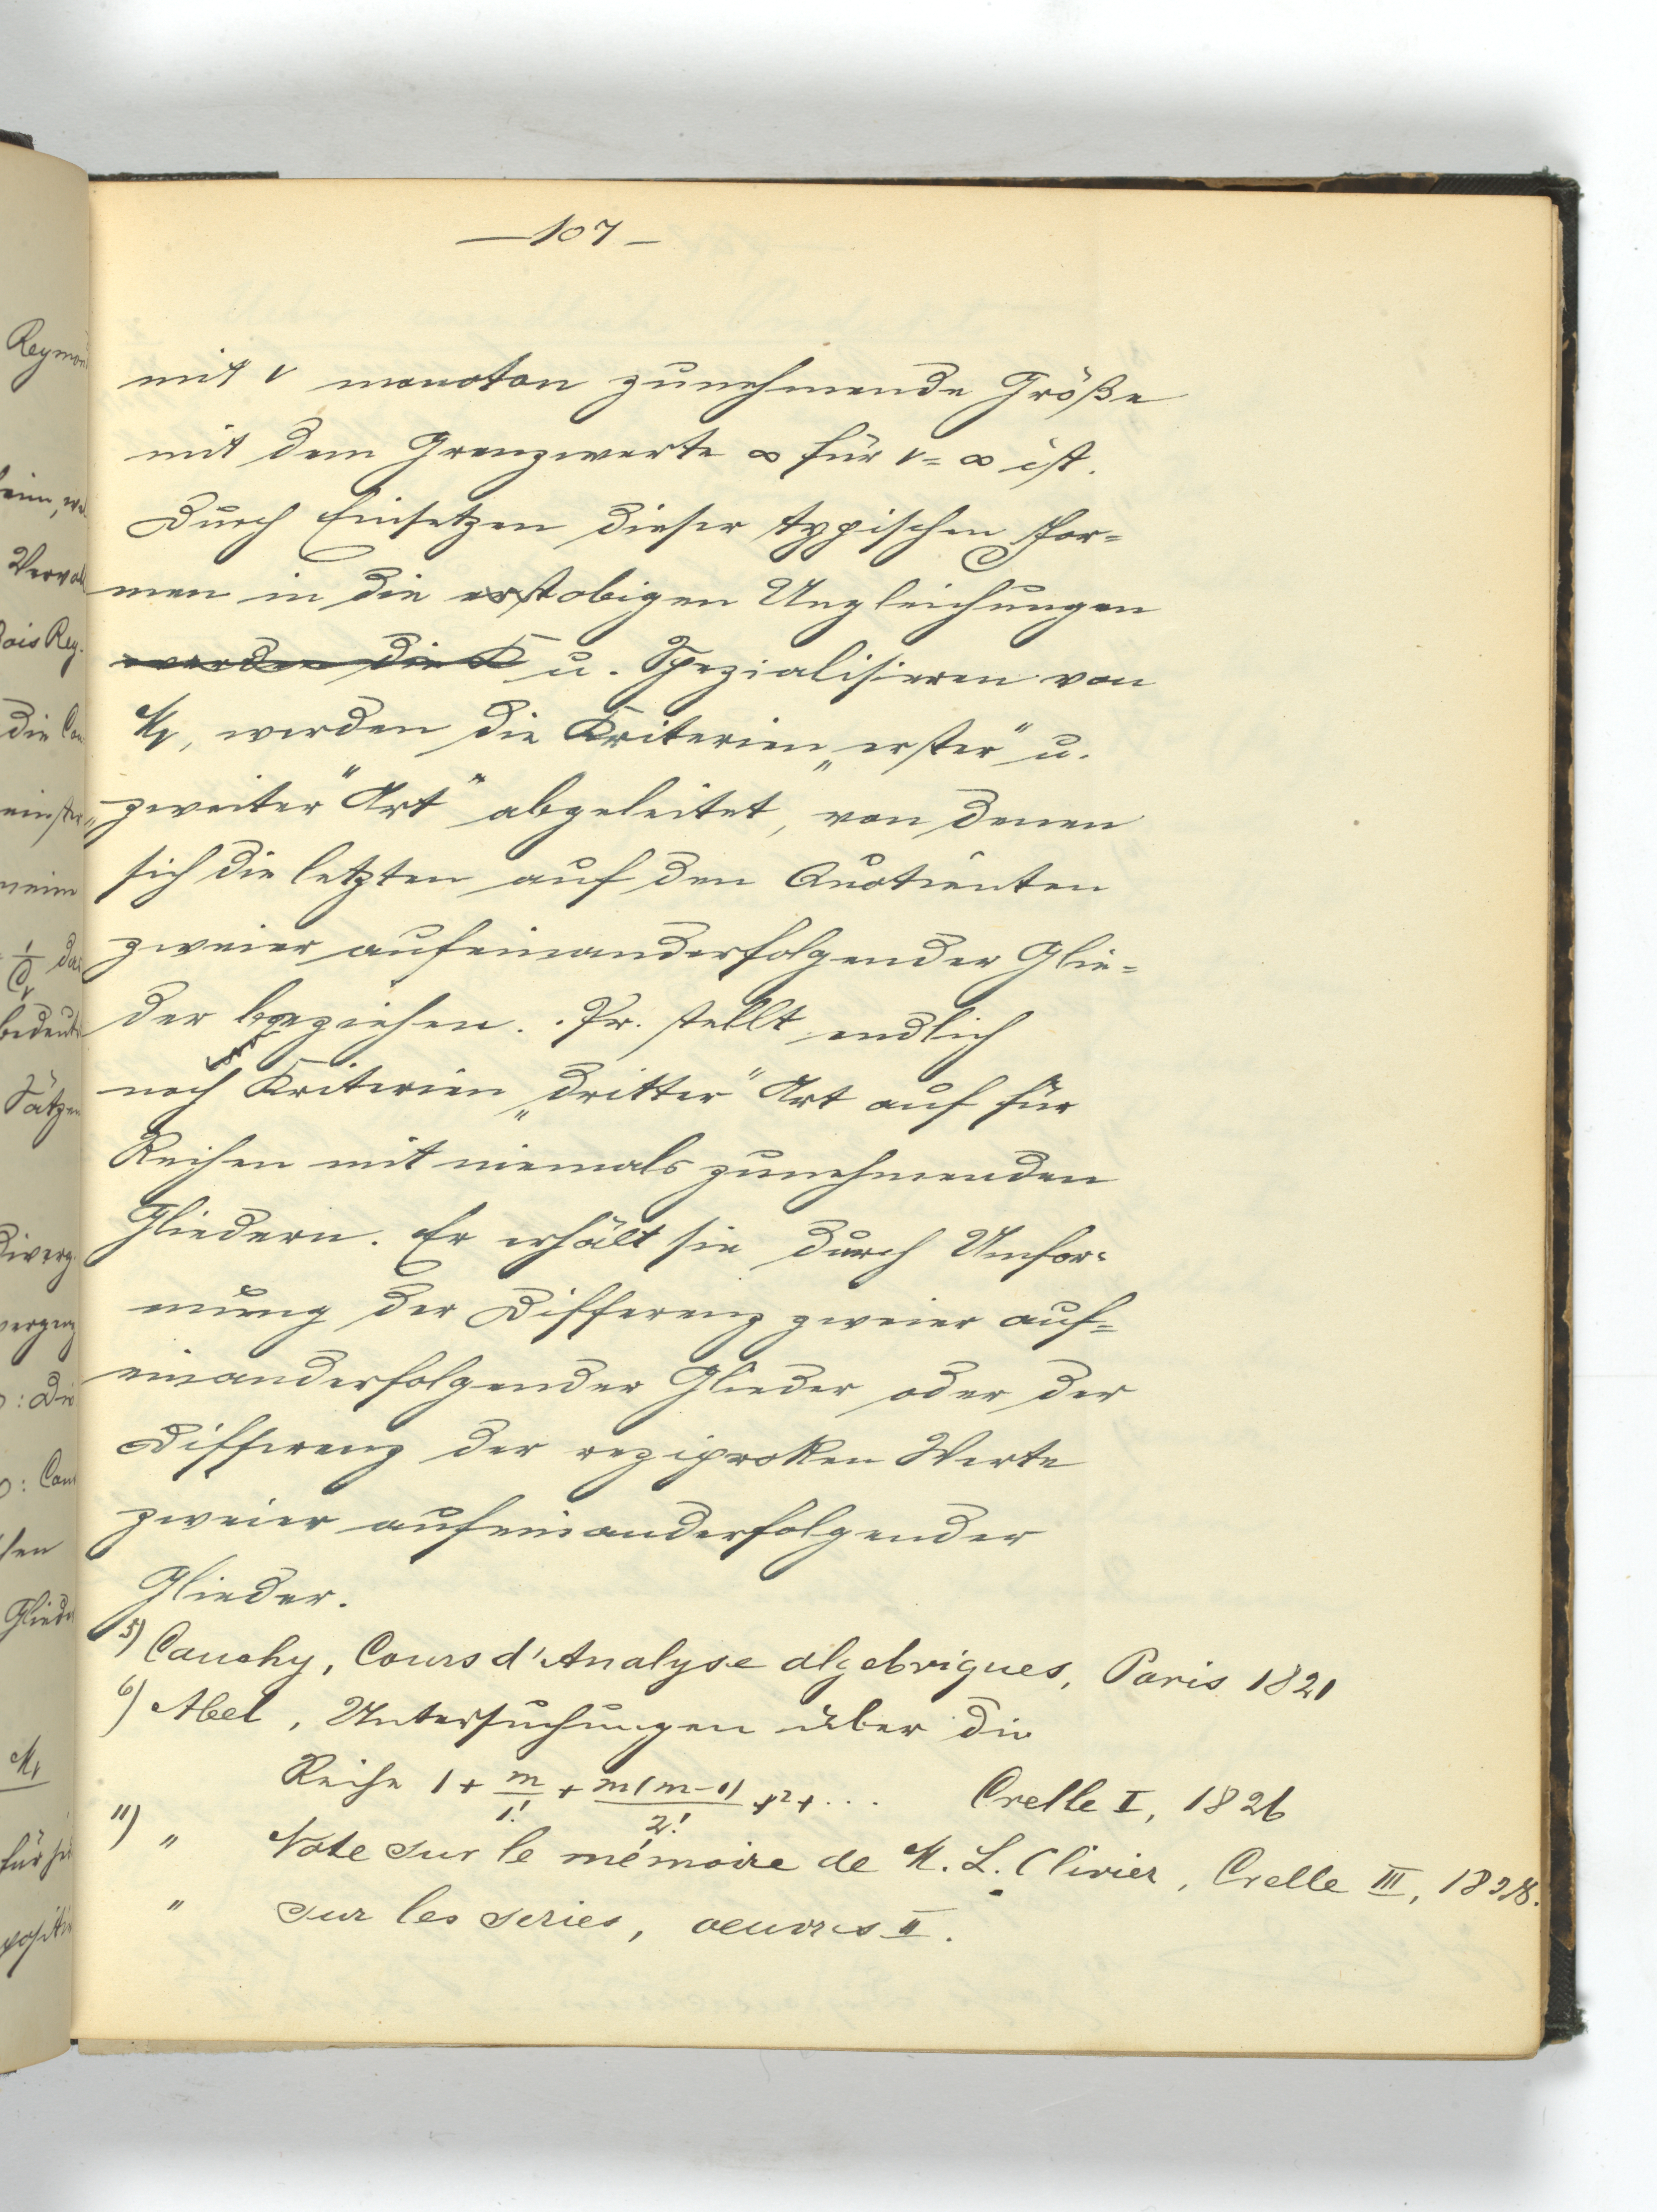 — 107 —
mit ν monoton zunehmende Größe
mit dem Grenzwerte ∞ für ν = ∞ ist.
Durch Einsetzen dieser typischen For=
men in die erst obigen Ungleichungen
werden die K u. Spezialisieren von
Mν, werden die Kriterien „erster" u.
„zweiter" Art" abgeleitet, von denen
sich die letzten auf den Quotienten
zweier aufeinanderfolgender Glie=
der beziehen. Pr. stellt endlich
noch Kriterien „dritter" Art auf für
Reihen mit niemals zunehmenden
Gliedern. Er erhält sie durch Umfor=
mung der Differenz zweier auf=
einanderfolgender Glieder oder der
Differenz der reziproken Werte
zweier aufeinanderfolgender
Glieder.
5) Cauchy, Cours d'Analyse algebriques, Paris 1821
6) Abel, Untersuchungen über die
Reihe 1 + m/1! + m(m-1)/2! x² + ... Crelle I, 1826
11) " Note sur le mémoire de M. L. Olivier, Crelle III, 1828.
" sur les series, oeuvres II.